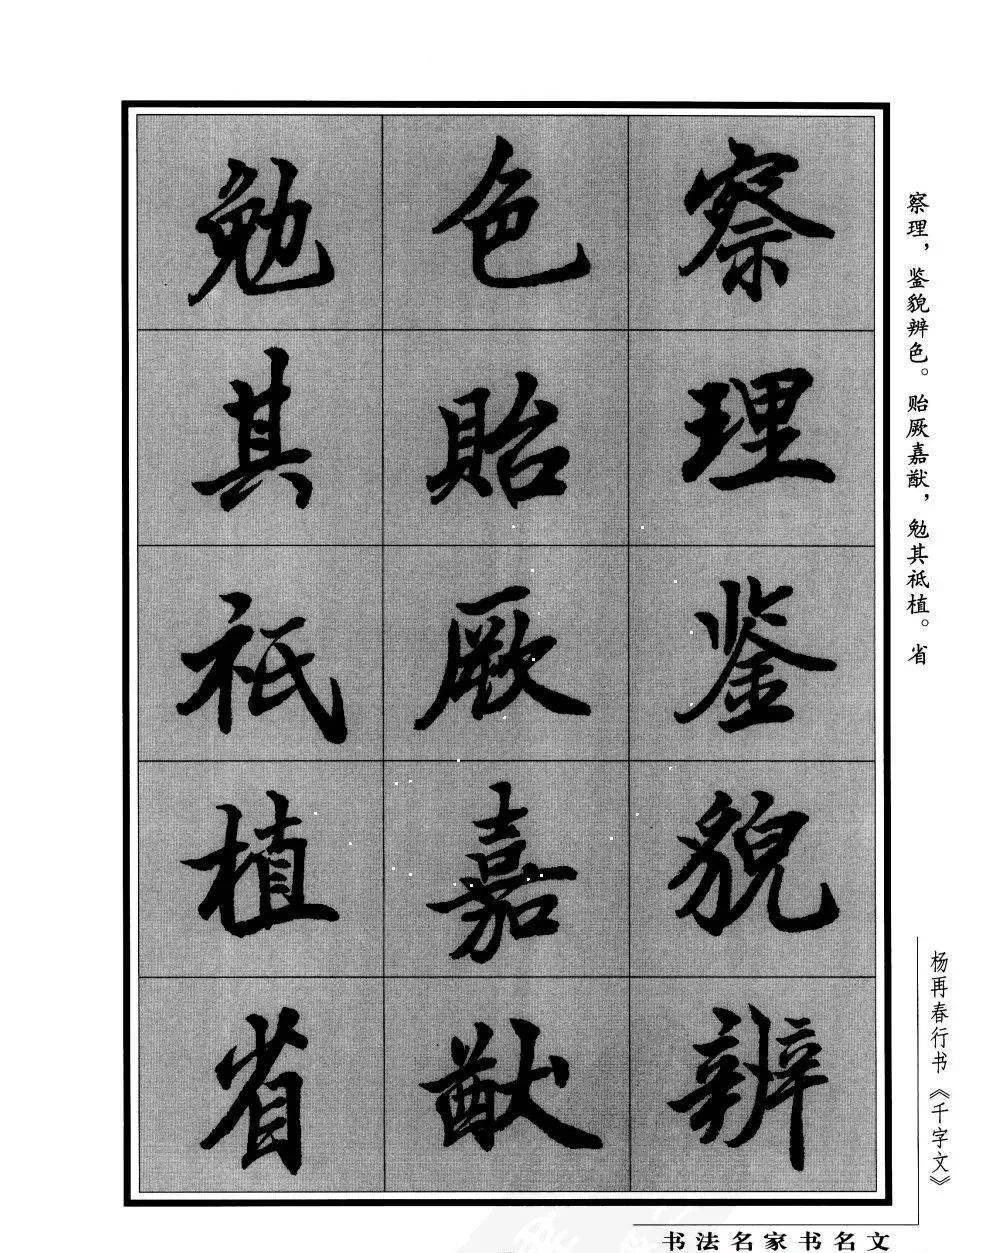 察理鉴貌辨
色贻厥嘉猷
勉其祗植省
察理，鉴貌辨色。贻厥嘉猷，勉其祗植。省
杨再春行书《千字文》
书法名家书名文